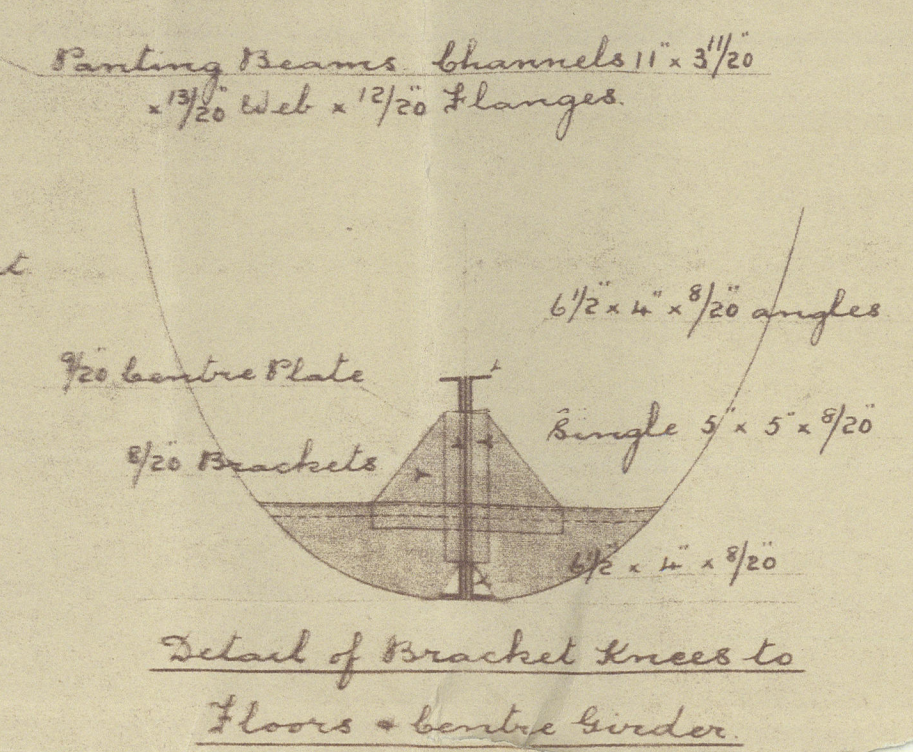 Panting Beams Channels 11" x 3 11/20"
x 13/20" Web x 12/20" Flanges.
6 1/2" x 4" x 8/20" angles
9/20" Centre Plate
Single 5" x 5" x 8/20"
8/20" Brackets
6 1/2" x 4" x 8/20"
Detail of Bracket Knees to
Floors & Centre Girder.